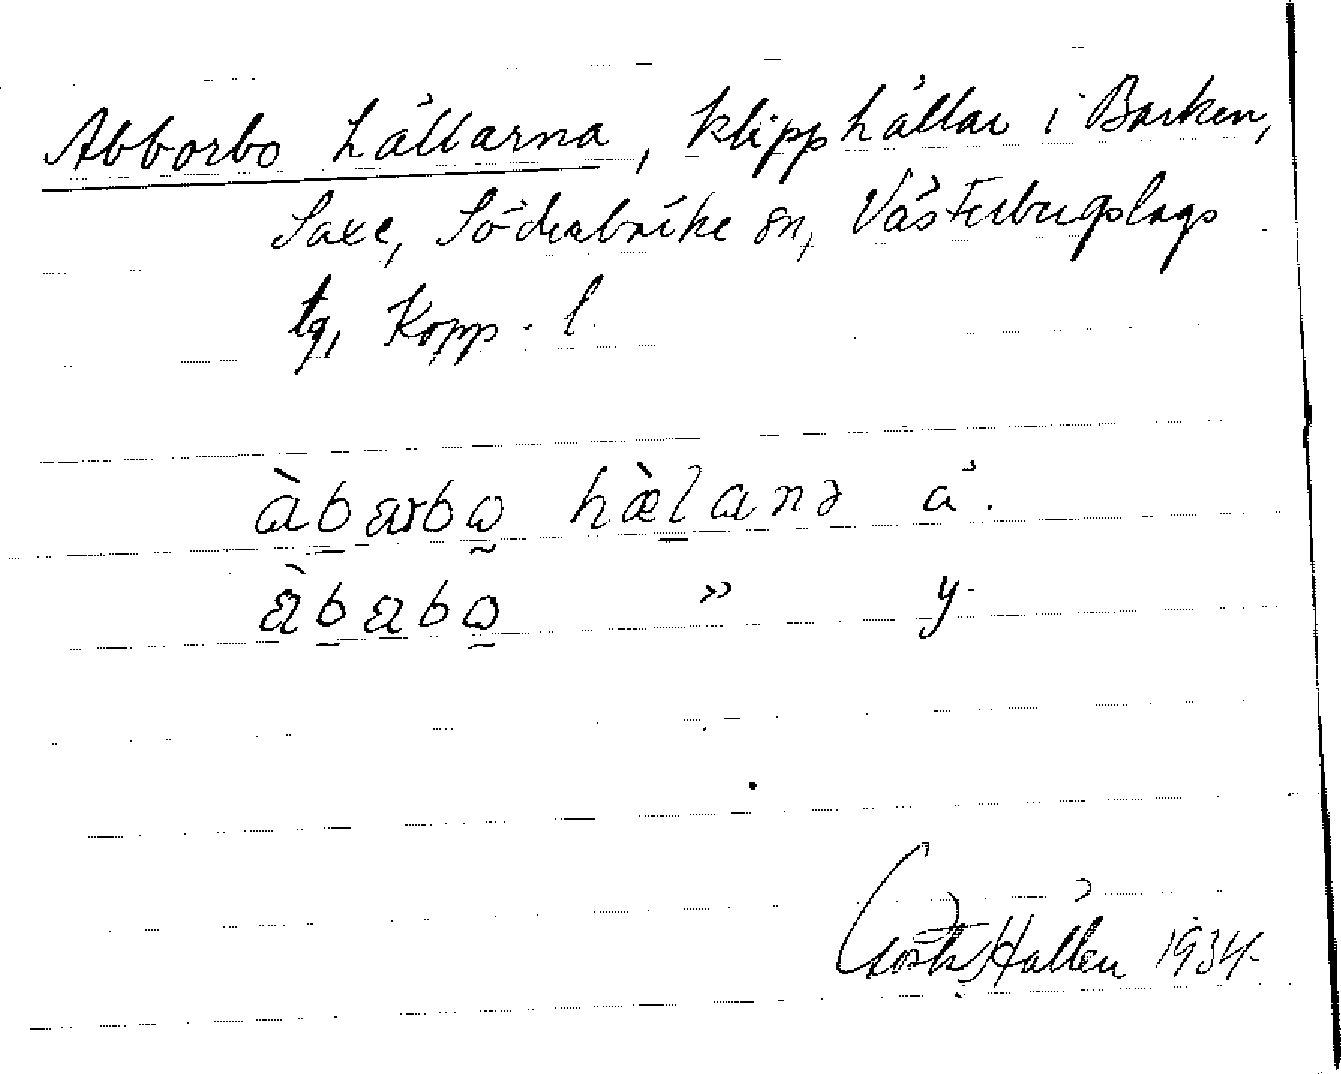 Abborbo hällarna, klipphällar i Barken,
Saxe, Söderbärke sn, Västerbergslags
tg, Kopp. l.
àbarbω hæ̀lanə ä.
àbabω » y.
Gösta Hallén 1934.